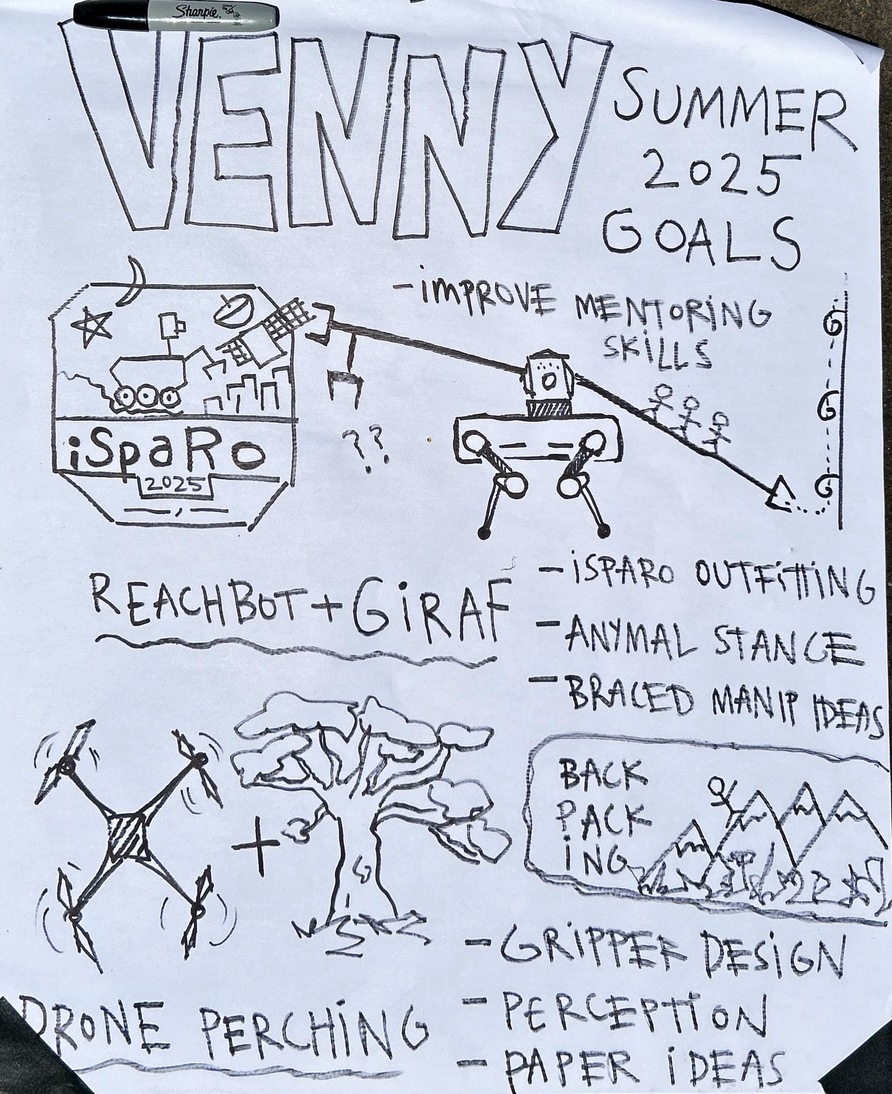 Sharpie.
VENNY
SUMMER
2025
GOALS
- iMPROVE MENTORiNG
SKiLLS
G
G
G
iSpaRo
2025
??
REACHBOT + GiRAF
- iSPARO OUTFiTTiNG
- ANYMAL STANCE
- BRACED MANIP IDEAS
BACK
PACK
iNG
+
DRONE PERCHiNG
- GRiPPER DESiGN
- PERCEPTiON
- PAPER iDEAS